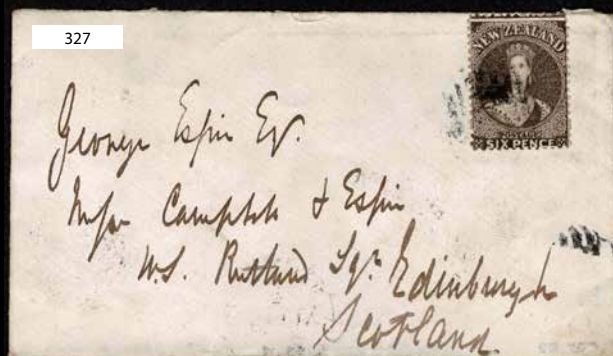 327
NEW ZEALAND
POSTAGE
SIX PENCE
George Espin Esq.
Campbell & Espin
W.S. Rutland Sqr. Edinburgh
Scotland.